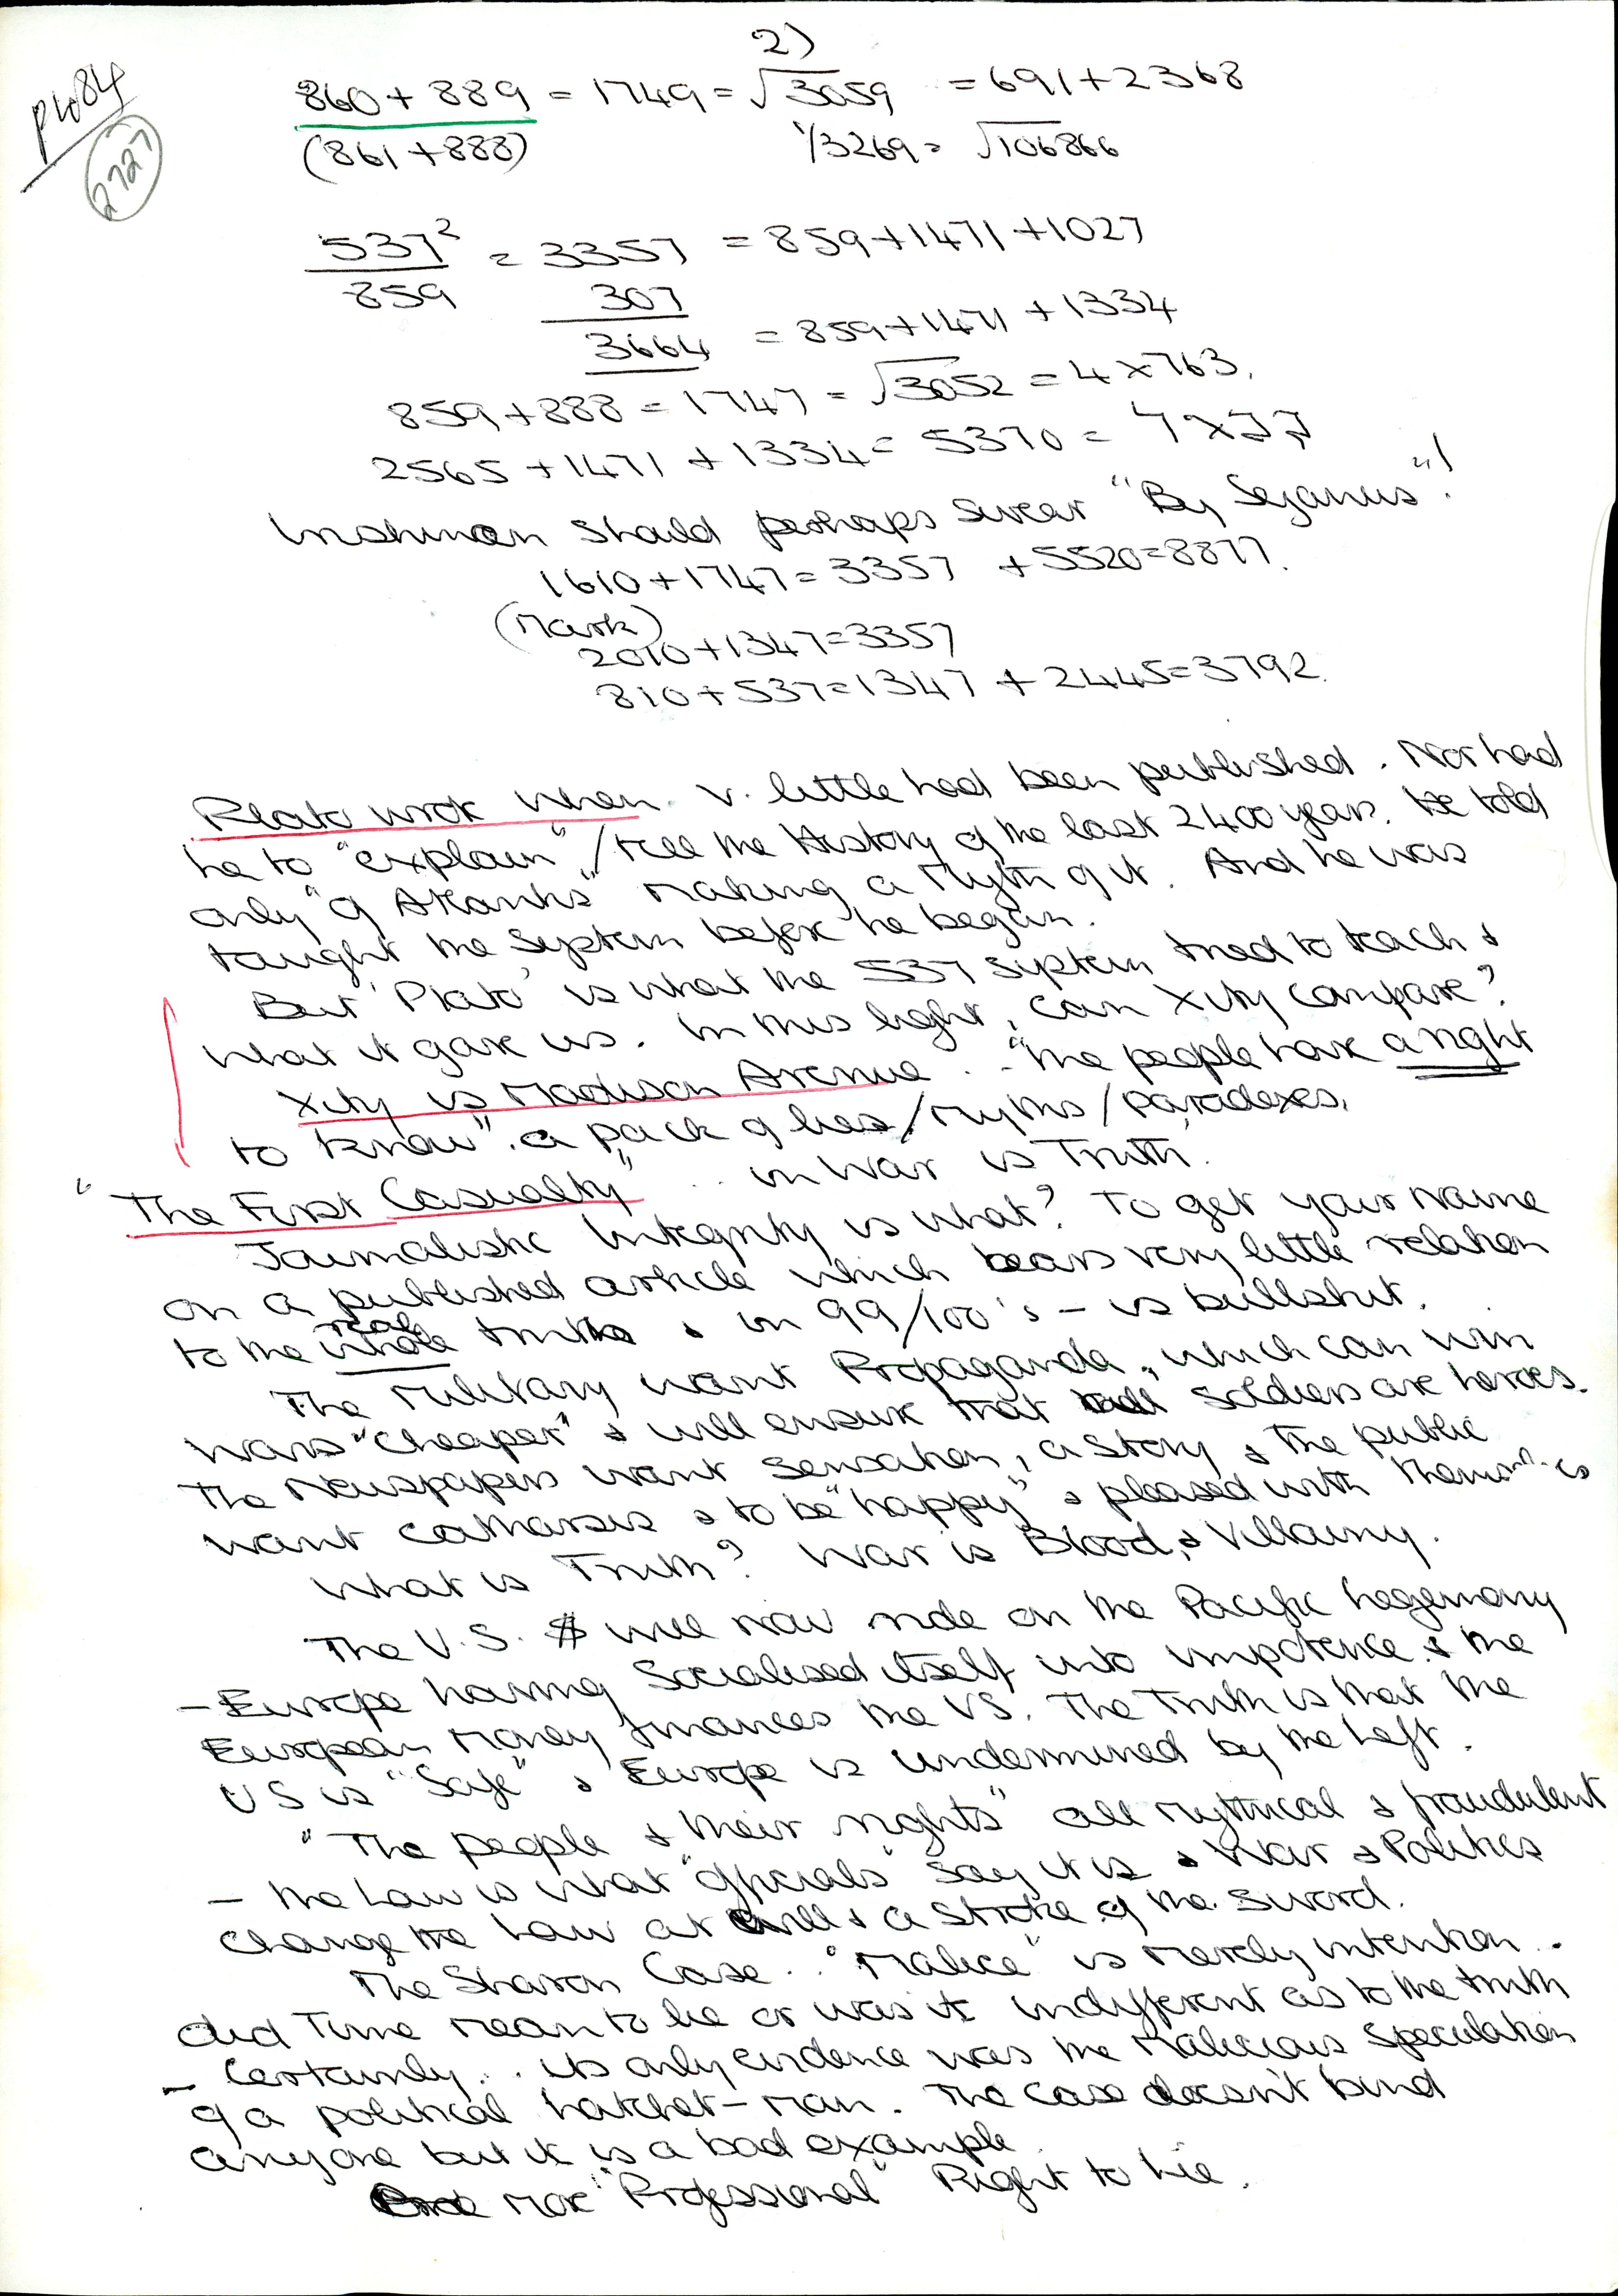 2)
PW84
2727
860 + 889 = 1749 = √3059 = 691 + 2368
(861 + 888) 1/3269 = √106866
537² = 3357 = 859 + 1471 + 1027
859 307
3664 = 859 + 1471 + 1334
859 + 888 = 1747 = √3052 = 4 x 763.
2565 + 1471 + 1334 = 5370 =
Irishmen should perhaps swear "By Sejanus"!
1610 + 1747 = 3357 + 5520 = 8877.
(Mark)
2010 + 1347 = 3357
810 + 537 = 1347 + 2445 = 3792.
Plato wrote when v. little had been published. Nor had
he to "explain"/tell the History of the last 2400 years. He told
only "of Atlantis" making a Myth of it. And he was
taught the system before he began.
But 'Plato' is what the 537 system tried to teach &
what it gave us. In this light, can Xity compare?
Xity is Madison Avenue.. "The people have a right
to know". a pack of lies/myths/paradoxes.
"The First Casualty" .. in War is Truth.
Journalistic Integrity is what? To get your Name
on a published article which bears very little relation
to the whole real truth & in 99/100's – is bullshit.
The Military want Propaganda, which can win
wars "cheaper" & will ensure that all soldiers are heroes.
The Newspapers want Sensation, a story & The public
want catharsis & to be "happy" & pleased with
What is Truth? War is Blood, & Villainy.
The U.S. $ will now ride on the Pacific hegemony
– Europe having Socialised itself into impotence & the
European Money finances the US. The Truth is that the
US is "Safe" & Europe is undermined by the Left.
"The people & their rights" all mythical & fraudulent
– the Law is what "officials" say it is & War & Politics
change the Law at will & a stroke of the sword.
The Sharon Case.. "Malice" is merely intention..
did Time mean to lie or was it indifferent as to the truth
– Certainly.. its only evidence was the Malicious speculation
of a political hatchet-man. The case doesn't bind
anyone but it is a bad example.
More "Professional" Right to Lie.